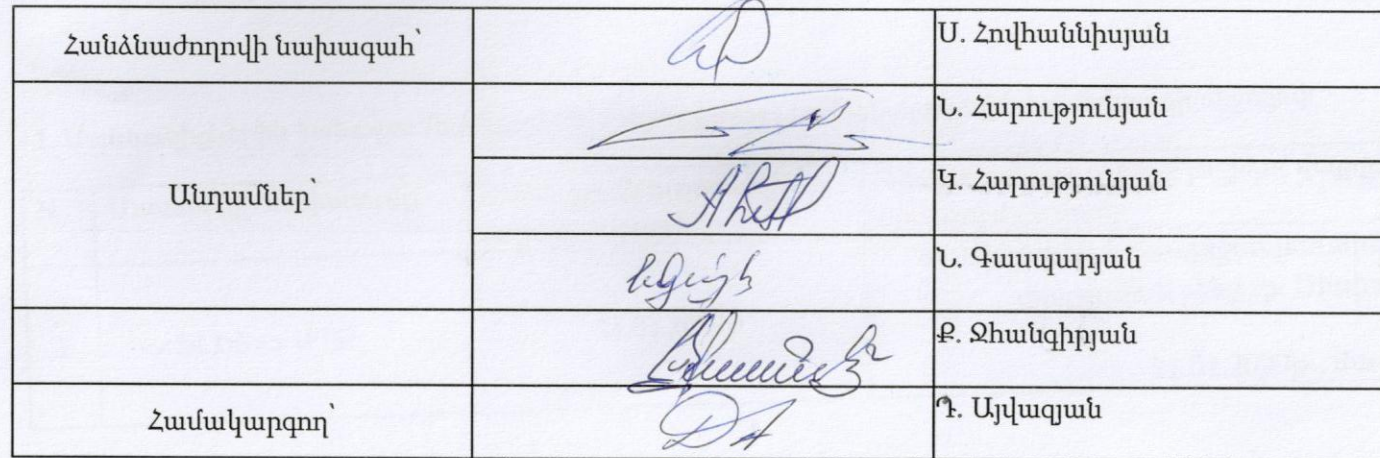 Հանձնաժողովի նախագահ՝
Ս. Հովհաննիսյան
Անդամներ՝
Ն. Հարությունյան
Կ. Հարությունյան
Ն. Գասպարյան
Ք. Ջհանգիրյան
Համակարգող՝
Դ. Այվազյան